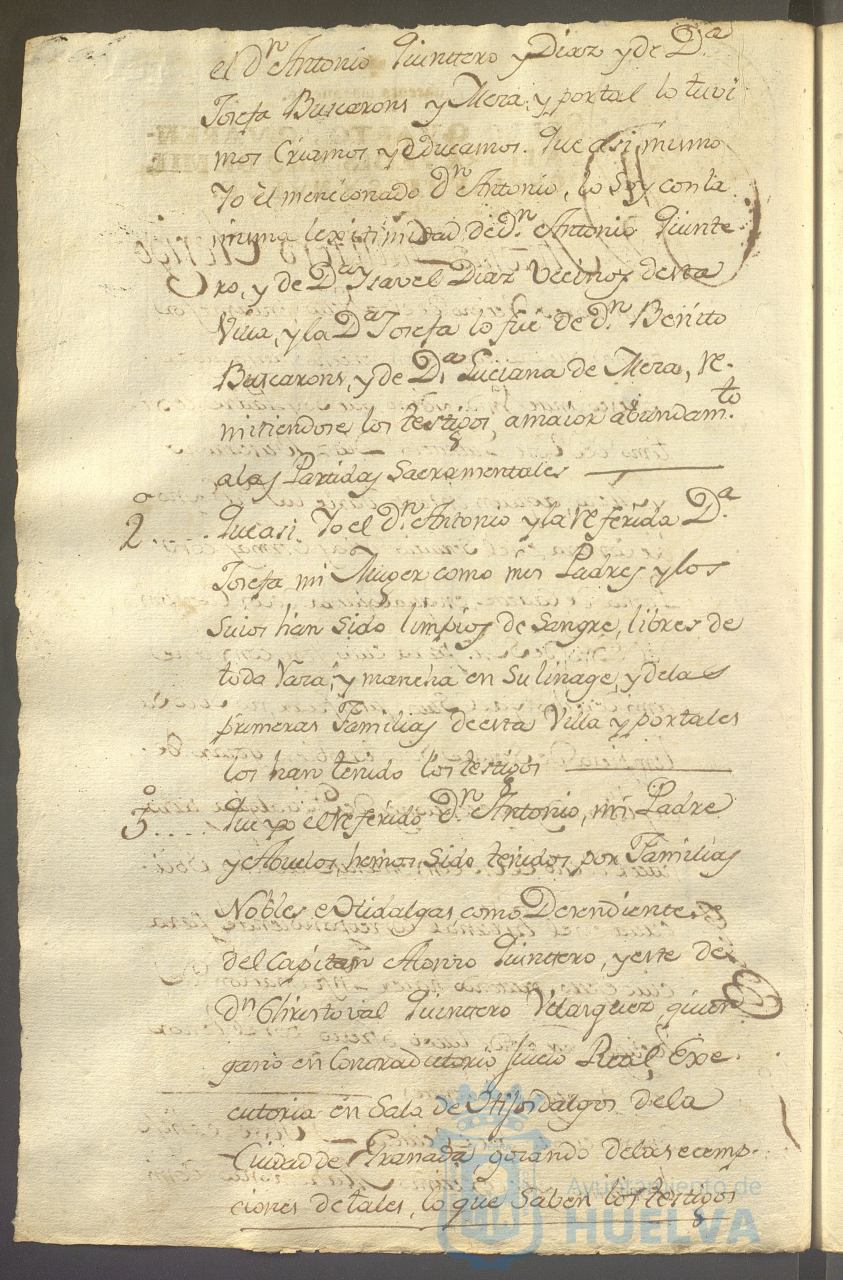 el Dn Antonio Quintero y Diaz y de Da
Josefa Buscarons y Mera, y por tal lo tuvi
mos Criamos y educamos. Que asi mismo
Yo el mencionado Dn Antonio, lo soy con la
misma lexitimidad, de Dn Antonio Quinte
ro, y de Da Ysavel Diaz Vecinos desta
Villa, y la Da Josefa lo fue de Dn Benitto
Buscarons, y de Da Luciana de Mera, re-
mitiendose los testigos, a maior abundamto
alas Partidas Sacramentales
2a .... Que asi Yo el Dn Antonio y la referida Da
Josefa mi Muger como mis Padres y los
Suios han sido limpios de Sangre, libres de
toda Vara, y mancha en su linage, y delas
primeras Familias de esta Villa y por tales
los han tenido los testigos
3a .... Que yo el referido Dn Antonio, mi Padre
y Abuelos, hemos sido tenidos por Familias
Nobles e Hidalgas como Decendientes
del Capitan Alonzo Quintero, y este de
Dn Christoval Quintero Velasquez, quien
gano en Contradictorio Juicio Real Exe-
cutoria en Sala de Hijosdalgos dela
Ciudad de Granada, gozando delas ecemp-
ciones de tales, lo que Saben los testigos
Ayuntamiento de
HUELVA